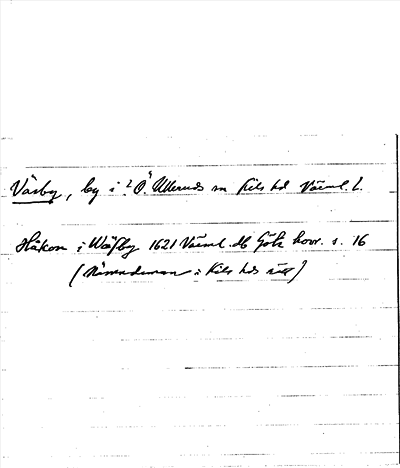 Väsby, by i ? Ö. Ullerud sn Kils hd Värml. l.
Håkon i Wäsby 1621 Värml. db Göta hovr. s. 16
(Nämndeman i Kils hds rätt)